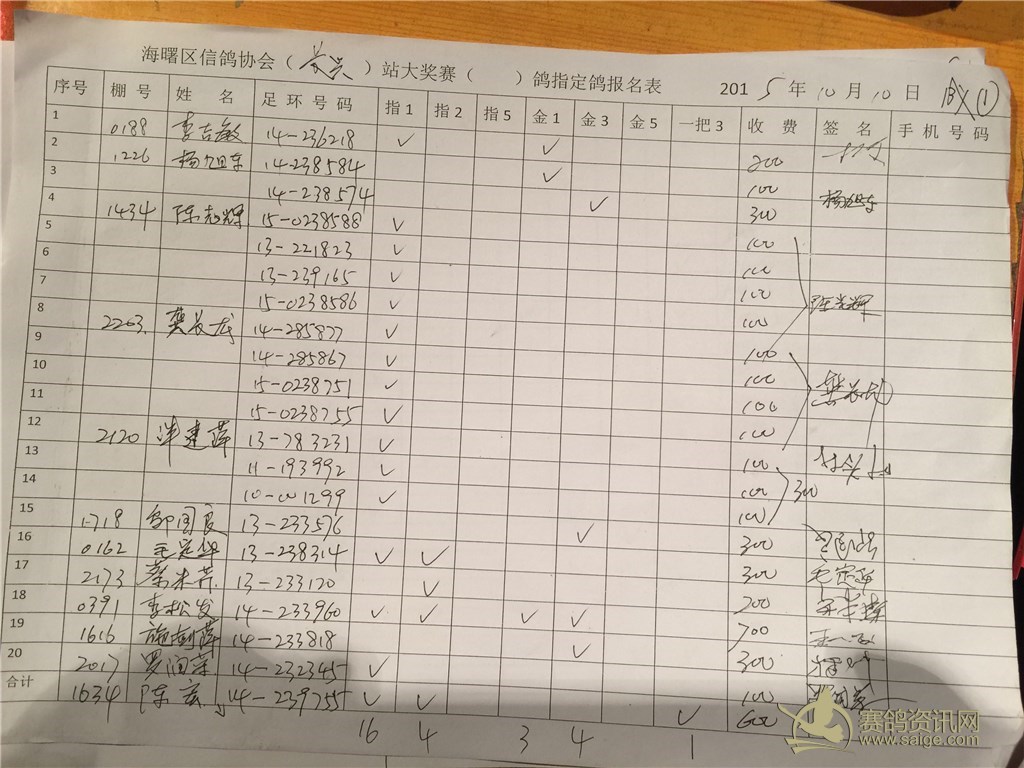 海曙区信鸽协会（长兴）站大奖赛（ ）鸽指定鸽报名表 2015年10月10日 B×(1)
序号 棚号 姓 名 足环号码 指1 指2 指5 金1 金3 金5 一把3 收费 签名 手机号码
1 0188 李吉敏 14-236218 ✓ ✓ 200
2 1226 杨旭东 14-238584 ✓ 100
3 14-238574 ✓ 300 杨旭东
4 1434 陈志辉 15-0238588 ✓ 100
5 13-221823 ✓ 100
6 13-239165 ✓ 100
7 15-0238586 ✓ 100 陈志辉
8 2203 樊长龙 14-285877 ✓ 100
9 14-285867 ✓ 100
10 15-0238751 ✓ 100 樊长龙
11 15-0238755 ✓ 100
12 2120 建萍 13-783231 ✓ 100
13 11-193992 ✓ 100 300
14 10-001299 ✓ 100
15 1718 邹国良 13-233576 ✓ 300
16 0162 毛定华 13-238314 ✓ ✓ 300 毛定华
17 2173 13-233120 ✓ 200
18 0391 李松发 14-233960 ✓ ✓ ✓ ✓ 700
19 1616 14-233818 ✓ 300
20 2017 罗润荣 14-232345 ✓ 100
合计 1634 陈 14-239755 ✓ ✓ ✓ 600
16 4 3 4 1
赛鸽资讯网
www.saige.com